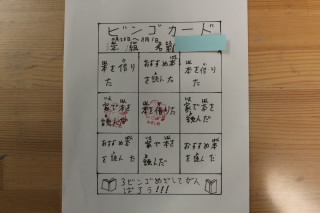 ビンゴカード
本を借り
た
おすすめ本
を読んだ
本を借り
た
家で本を
読んだ
本を借りた
家で本を
読んだ
おすすめ本
を読んだ
家で本を
読んだ
おすすめ本
を読んだ
3ビンゴめざしてがん
ばろう!!!